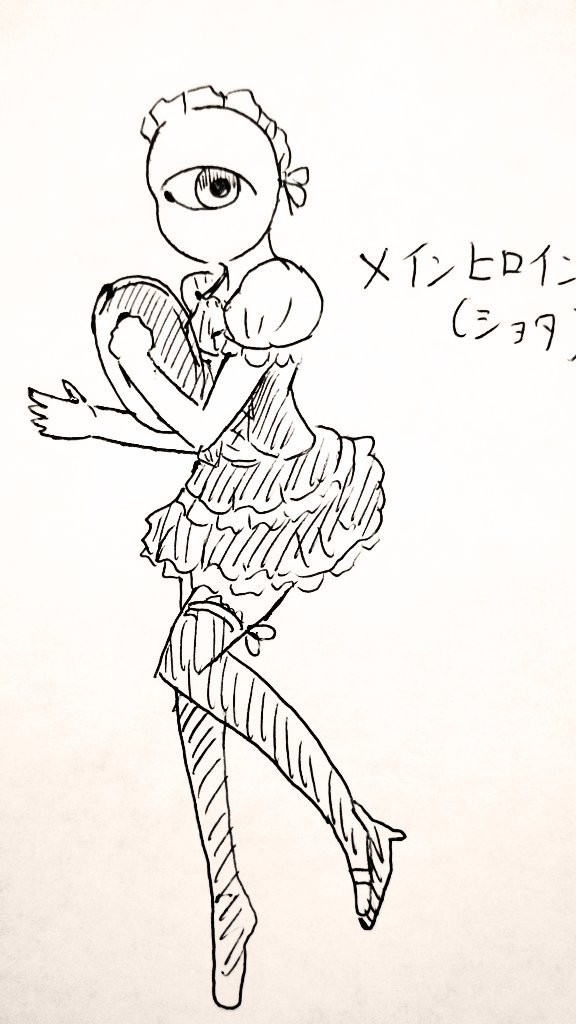 メインヒロイン
(ショタ)